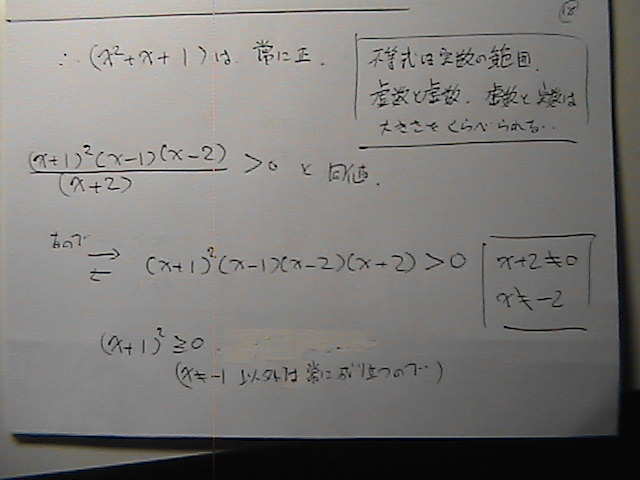 18
∴ (x²+x+1)は 常に正.
不等式は実数の範囲.
虚数と虚数. 虚数と実数は
大きさをくらべられる..
(x+1)²(x-1)(x-2)/(x+2) >0 と 同値.
ので
⇄ (x+1)²(x-1)(x-2)(x+2)>0
x+2≠0
x≠-2
(x+1)²≧0
(x=-1 以外は 常に成り立つので‥)